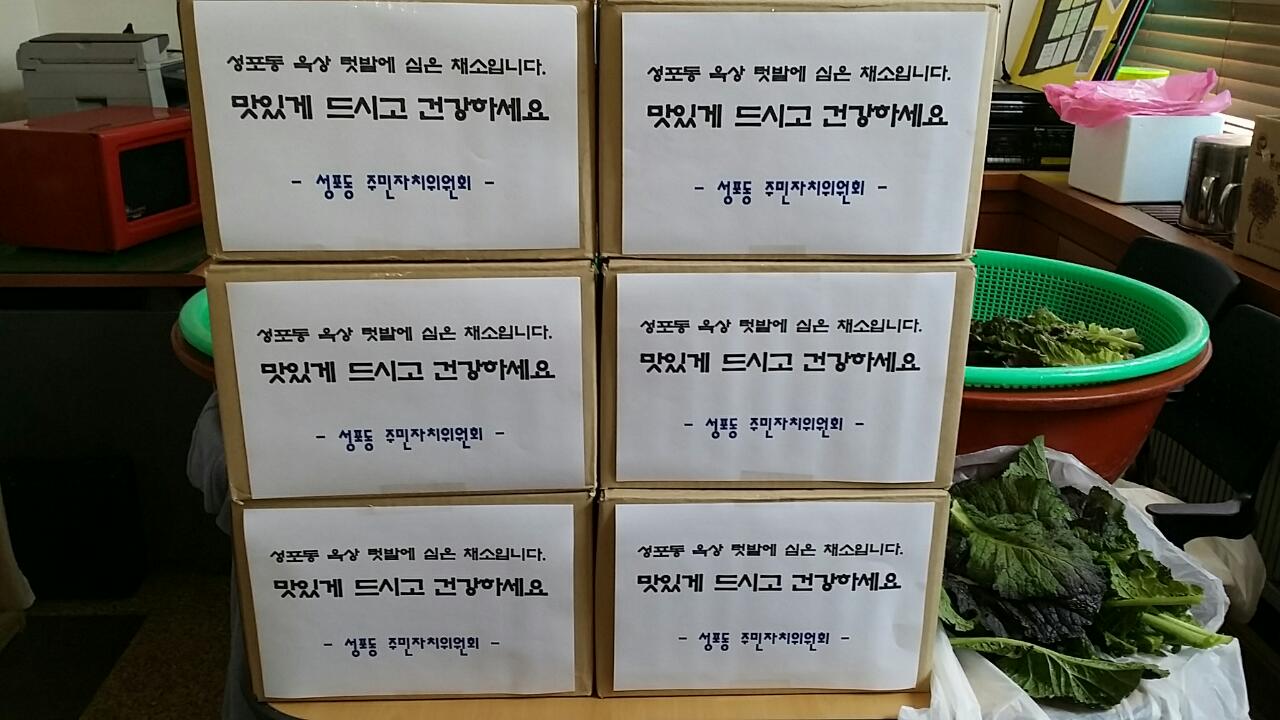 성포동 옥상 텃밭에 심은 채소입니다.
맛있게 드시고 건강하세요
- 성포동 주민자치위원회 -
성포동 옥상 텃밭에 심은 채소입니다.
맛있게 드시고 건강하세요
- 성포동 주민자치위원회 -
성포동 옥상 텃밭에 심은 채소입니다.
맛있게 드시고 건강하세요
- 성포동 주민자치위원회 -
성포동 옥상 텃밭에 심은 채소입니다.
맛있게 드시고 건강하세요
- 성포동 주민자치위원회 -
성포동 옥상 텃밭에 심은 채소입니다.
맛있게 드시고 건강하세요
- 성포동 주민자치위원회 -
성포동 옥상 텃밭에 심은 채소입니다.
맛있게 드시고 건강하세요
- 성포동 주민자치위원회 -